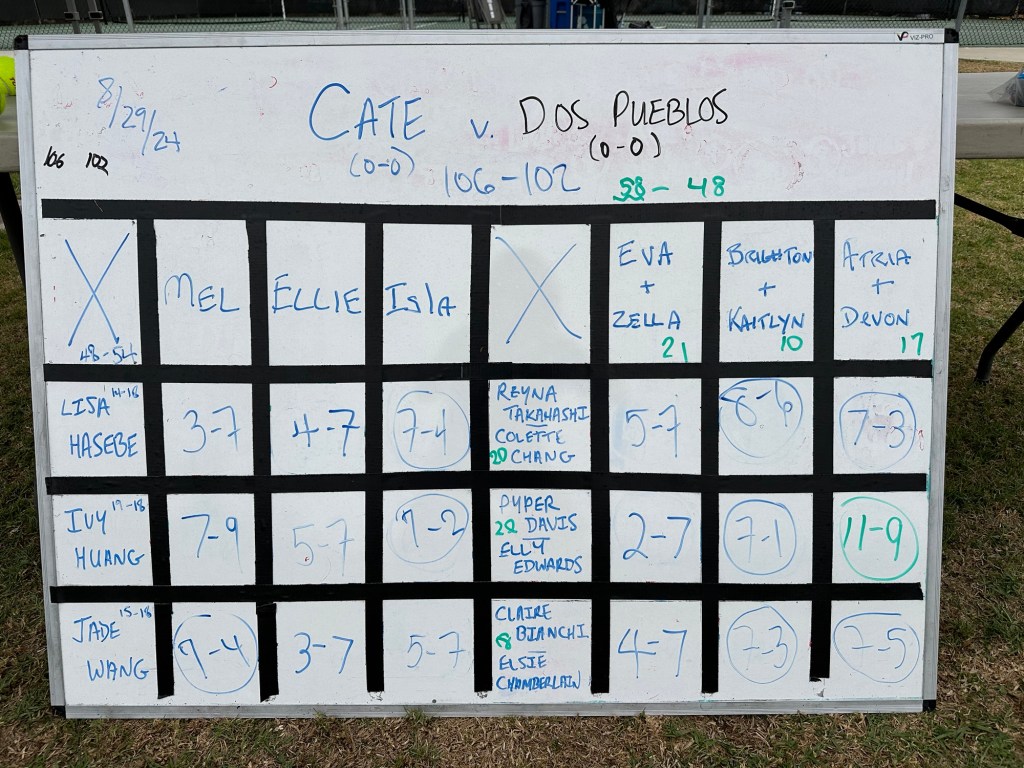 VIZ-PRO
8/29/24
CATE v. DOS PUEBLOS
(0-0) (0-0)
106 102
106-102 58-48
MEL
ELLIE
ISlA
EVA
+
ZELLA
21
BRIGHTON
+
KAITLYN
10
ATRIA
+
DEVON
17
48-54
LISA 14-18
HASEBE
3-7
4-7
7-4
REYNA
TAKAHASHI
COLETTE
20 CHANG
5-7
8-6
7-3
IVY 19-18
HUANG
7-9
5-7
7-2
PYPER
DAVIS
ELLY
EDWARDS
2-7
7-1
11-9
JADE 15-18
WANG
7-4
3-7
5-7
CLAIRE
BIANCHI
ELSIE
CHAMBERLAIN
4-7
7-3
7-5